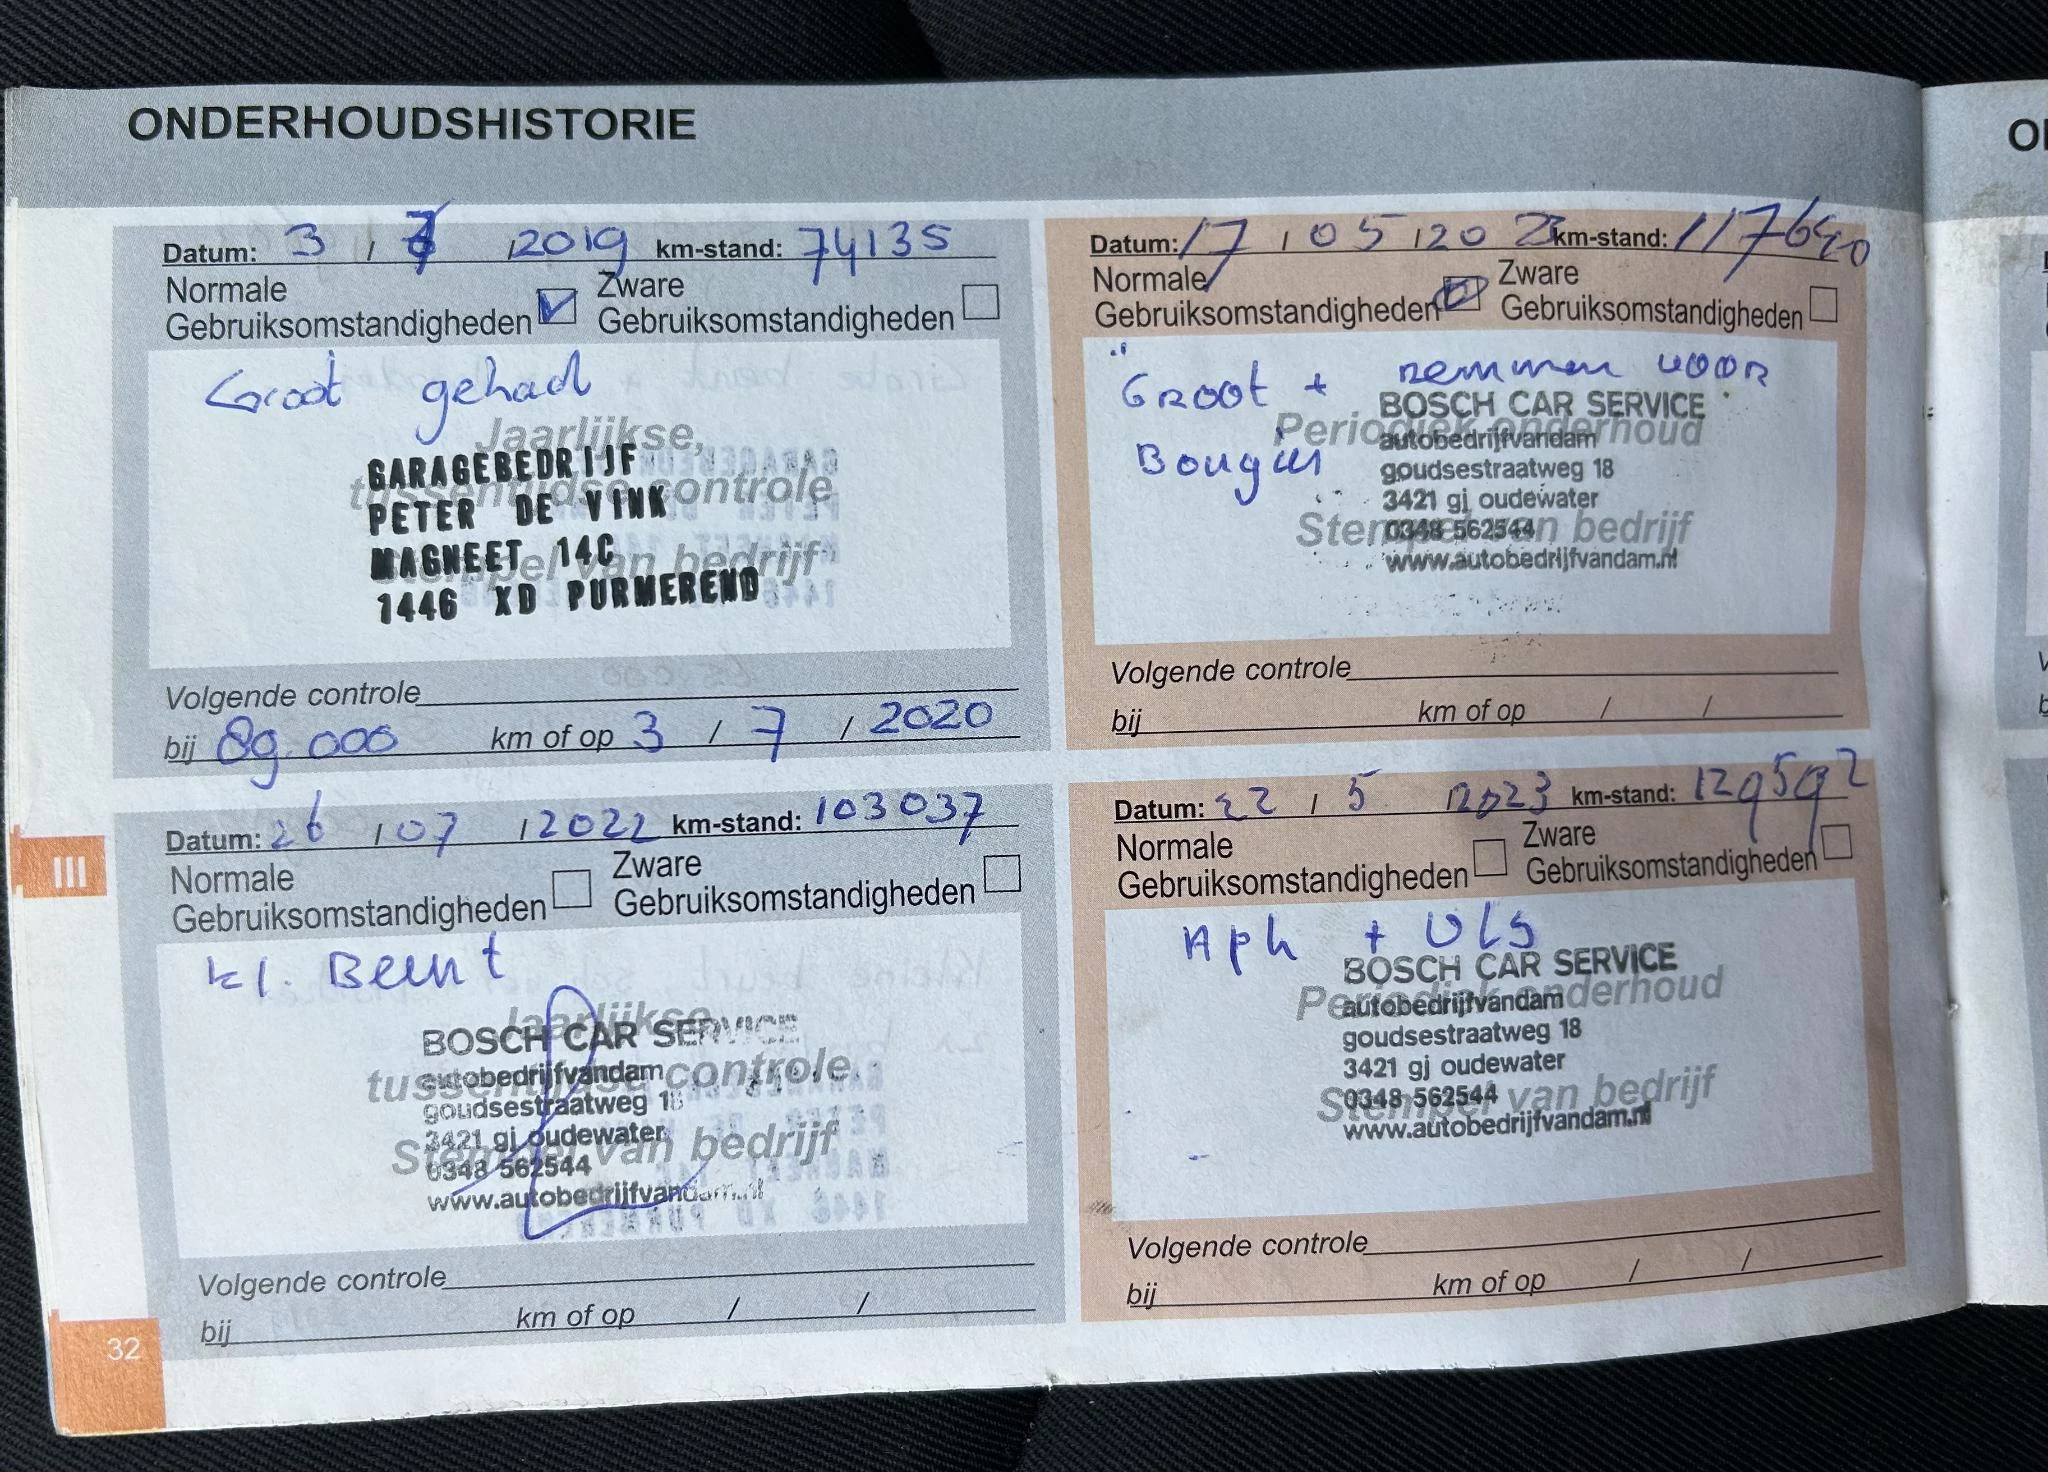 ONDERHOUDSHISTORIE
Datum: 3 / 7 / 2019 km-stand: 74135
Normale Gebruiksomstandigheden Zware Gebruiksomstandigheden
Groot gehad
Jaarlijkse,
tussentijdse controle
Stempel van bedrijf
GARAGEBEDRIJF
PETER DE VINK
MAGNEET 14C
1446 XD PURMEREND
Volgende controle
bij 89.000 km of op 3 / 7 / 2020
Datum: 26 / 07 / 2022 km-stand: 103037
Normale Gebruiksomstandigheden Zware Gebruiksomstandigheden
kl. Beurt
Jaarlijkse,
tussentijdse controle
Stempel van bedrijf
BOSCH CAR SERVICE
autobedrijfvandam
goudsestraatweg 18
3421 gj oudewater
0348 562544
www.autobedrijfvandam.nl
Volgende controle
bij km of op / /
III
32
Datum: 17 / 05 / 202 km-stand: 117640
Normale Gebruiksomstandigheden Zware Gebruiksomstandigheden
Groot + remmen voor
Bougies
Periodiek onderhoud
Stempel van bedrijf
BOSCH CAR SERVICE
autobedrijfvandam
goudsestraatweg 18
3421 gj oudewater
0348 562544
www.autobedrijfvandam.nl
Volgende controle
bij km of op / /
Datum: 22 / 5 / 2023 km-stand: 129592
Normale Gebruiksomstandigheden Zware Gebruiksomstandigheden
Apk + Ols
Periodiek onderhoud
Stempel van bedrijf
BOSCH CAR SERVICE
autobedrijfvandam
goudsestraatweg 18
3421 gj oudewater
0348 562544
www.autobedrijfvandam.nl
Volgende controle
bij km of op / /